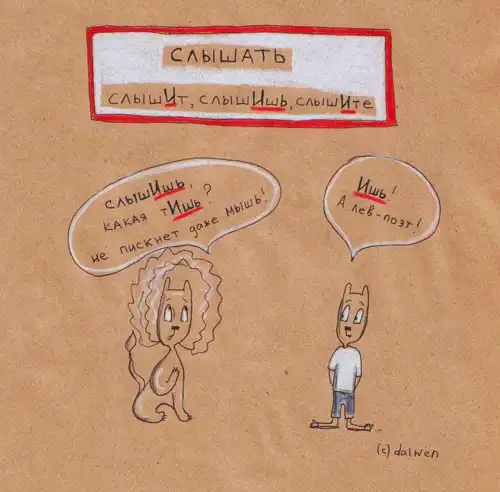 СЛЫШАТЬ
СЛЫШИТ, СЛЫШИшь, СЛЫШИте
СЛЫШИшь,
КАКАЯ ТИшь?
НЕ ПИСКНЕТ ДАЖЕ МЫШЬ!
Ишь!
А ЛЕВ-ПОЭТ!
(c) dalwen